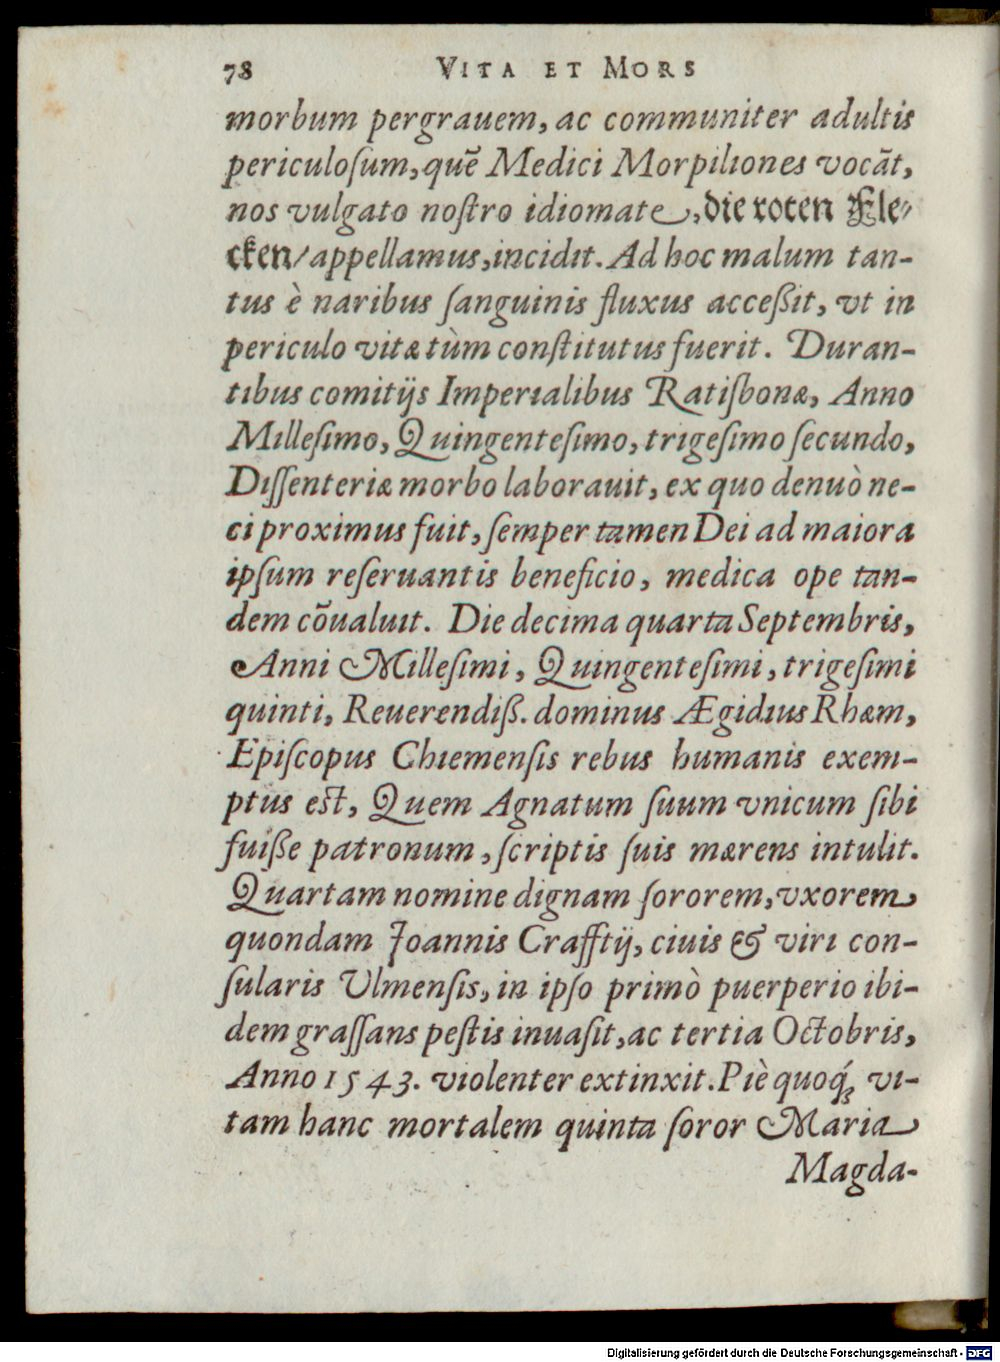 78 VITA ET MORS
morbum pergrauem, ac communiter adultis
periculoſum, quẽ Medici Morpiliones vocãt,
nos vulgato noſtro idiomate, die roten Fle⸗
cken/ appellamus, incidit. Ad hoc malum tan-
tus è naribus ſanguinis fluxus acceßit, vt in
periculo vitæ tùm conſtitutus fuerit. Duran-
tibus comitijs Imperialibus Ratiſbonæ, Anno
Milleſimo, Quingenteſimo, trigeſimo ſecundo,
Diſſenteriæ morbo laborauit, ex quo denuò ne-
ci proximus fuit, ſemper tamen Dei ad maiora
ipſum reſeruantis beneficio, medica ope tan-
dem cõualuit. Die decima quarta Septembris,
Anni Milleſimi, Quingenteſimi, trigeſimi
quinti, Reuerendiß. dominus Ægidius Rhæm,
Epiſcopus Chiemenſis rebus humanis exem-
ptus est, Quem Agnatum ſuum vnicum ſibi
fuiße patronum, ſcriptis ſuis mærens intulit.
Quartam nomine dignam ſororem, vxorem
quondam Joannis Crafftij, ciuis & viri con-
ſularis Vlmenſis, in ipſo primò puerperio ibi-
dem graſſans peſtis inuaſit, ac tertia Octobris,
Anno 1543. violenter extinxit. Piè quoq́; vi-
tam hanc mortalem quinta ſoror Maria
Magda-
Digitalisierung gefördert durch die Deutsche Forschungsgemeinschaft - DFG